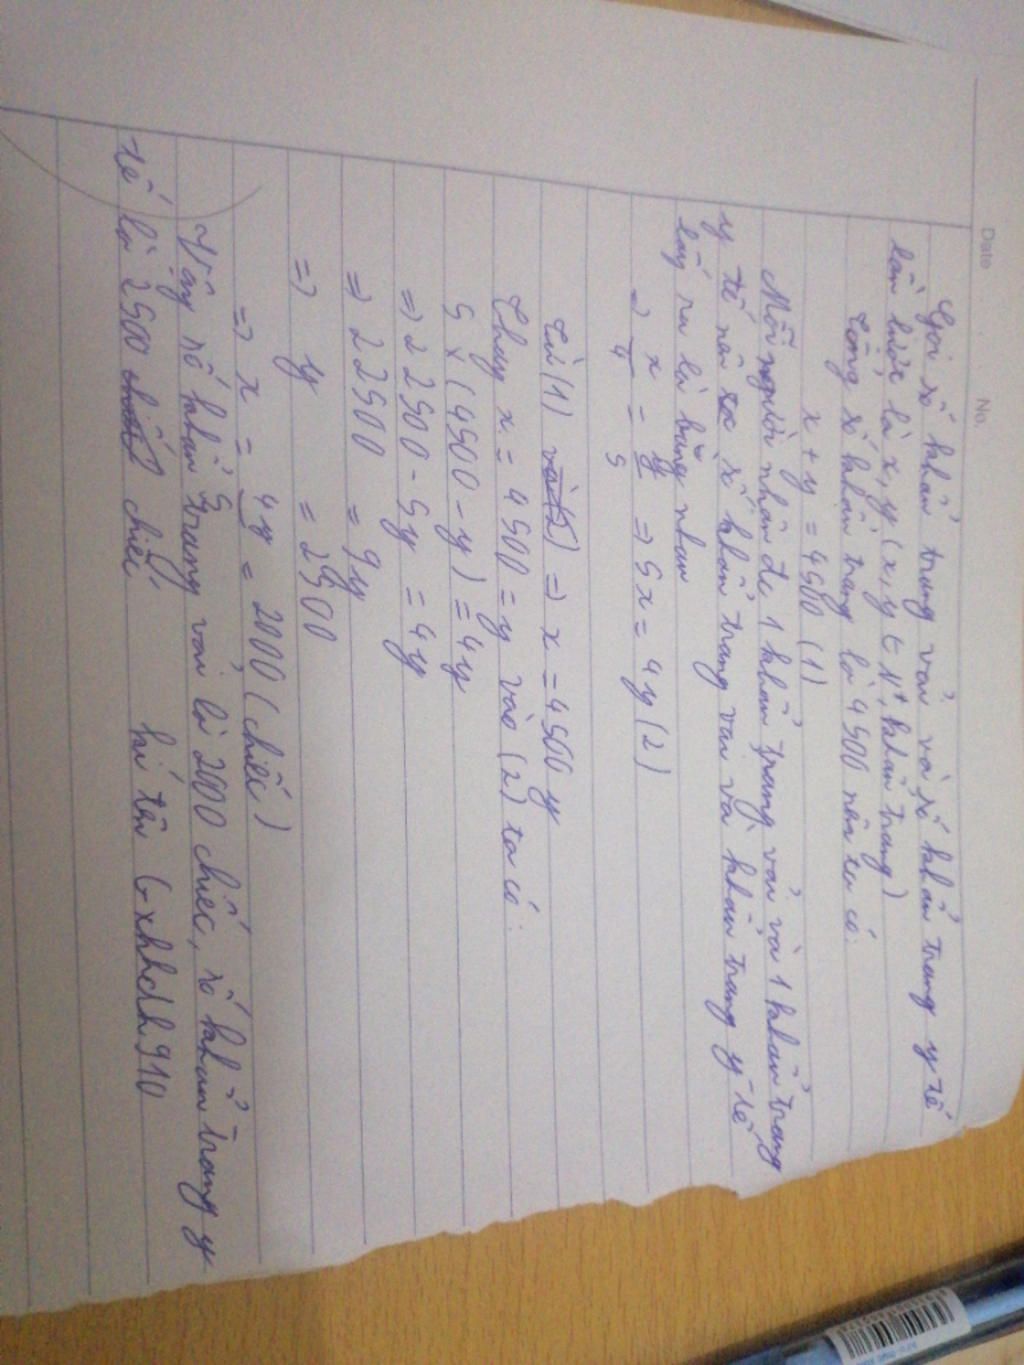 Date No.
Gọi số khẩu trang vải và số khẩu trang y tế
lần lượt là x, y (x, y ∈ N*, khẩu trang)
Tổng số khẩu trang là 4500 nên ta có:
x + y = 4500 (1)
Mỗi người nhận đc 1 khẩu trang vải và 1 khẩu trang
y tế nên số khẩu trang vải và khẩu trang y tế
lấy ra là bằng nhau
=> x/4 = y/5 => 5x = 4y (2)
Từ (1) và (2) => x = 4500 y
Thay x = 4500 = y vào (2) ta có:
5 x (4500 - y) = 4y
=> 22500 - 5y = 4y
=> 22500 = 9y
=> y = 2500
=> x = 4y/5 = 2000 (chiếc)
Vậy số khẩu trang vải là 2000 chiếc, số khẩu trang y
tế là 2500 chiếc kí tên Gxhhdh910